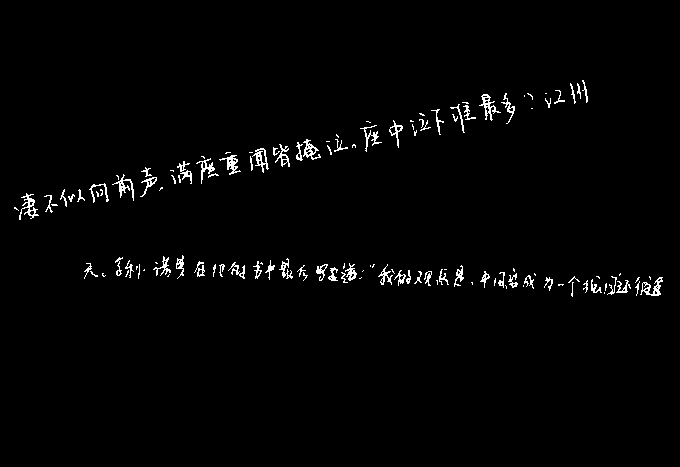 凄不似向前声，满座重闻皆掩泣。座中泣下谁最多？江州
天。亨利·诺男在他的书中最后写道：“我的观点是，中国若成为一个